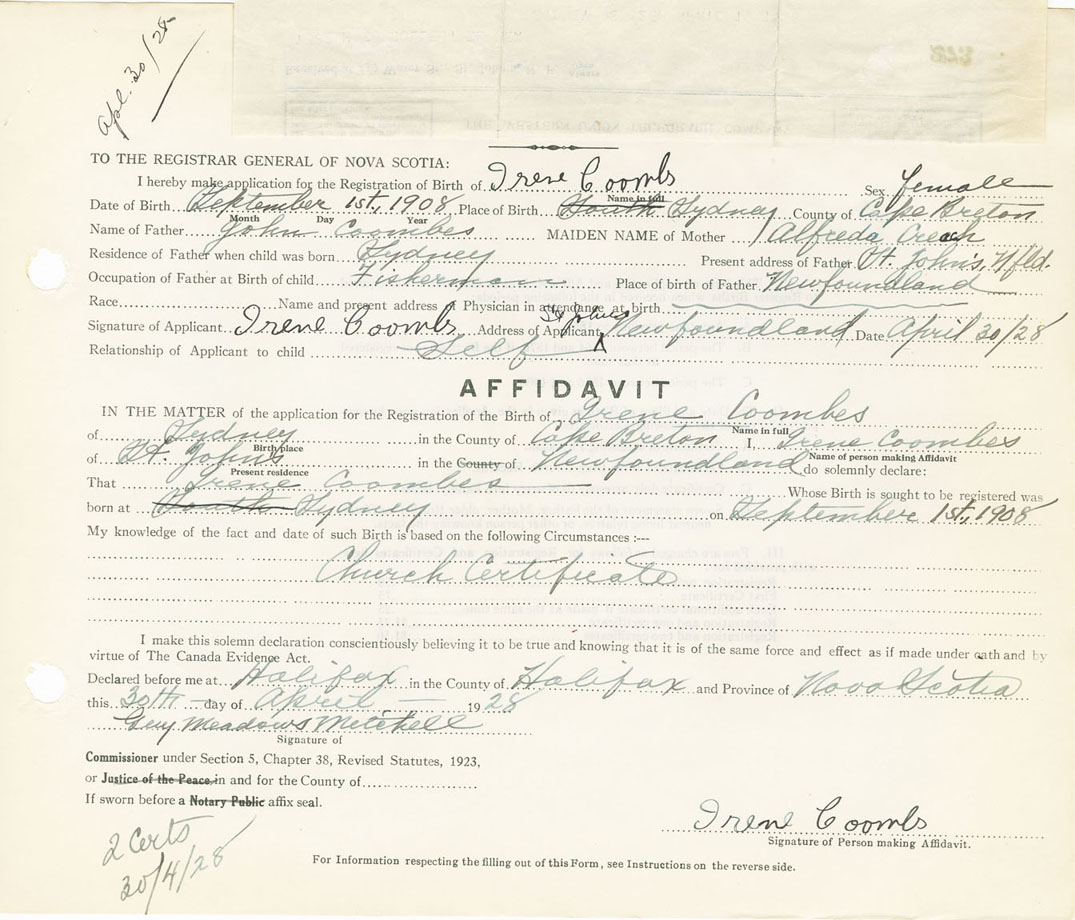 Apl. 30/28
TO THE REGISTRAR GENERAL OF NOVA SCOTIA:
I hereby make application for the Registration of Birth of Irene Coombs Sex female
Name in full
Date of Birth September 1st, 1908 Place of Birth South Sydney County of Cape Breton
Month Day Year
Name of Father John Coombes MAIDEN NAME of Mother Alfreda Creach
Residence of Father when child was born Sydney Present address of Father St. John's, Nfld.
Occupation of Father at Birth of child Fisherman Place of birth of Father Newfoundland
Race Name and present address of Physician in attendance at birth
Signature of Applicant Irene Coombs Address of Applicant St Johns Newfoundland Date April 30/28
Relationship of Applicant to child Self
AFFIDAVIT
IN THE MATTER of the application for the Registration of the Birth of Irene Coombes
Name in full
of Sydney in the County of Cape Breton I, Irene Coombes
Birth place Name of person making Affidavit
of St. John's in the County of Newfoundland do solemnly declare:
Present residence
That Irene Coombes Whose Birth is sought to be registered was
born at South Sydney on September 1st, 1908
My knowledge of the fact and date of such Birth is based on the following Circumstances :---
Church Certificate
I make this solemn declaration conscientiously believing it to be true and knowing that it is of the same force and effect as if made under oath and by
virtue of The Canada Evidence Act.
Declared before me at Halifax in the County of Halifax and Province of Nova Scotia
this 30th day of April 1928
Guy Meadows Mitchell
Signature of
Commissioner under Section 5, Chapter 38, Revised Statutes, 1923,
or Justice of the Peace in and for the County of
If sworn before a Notary Public affix seal.
Irene Coombs
Signature of Person making Affidavit.
2 Certs
30/4/28
For Information respecting the filling out of this Form, see Instructions on the reverse side.